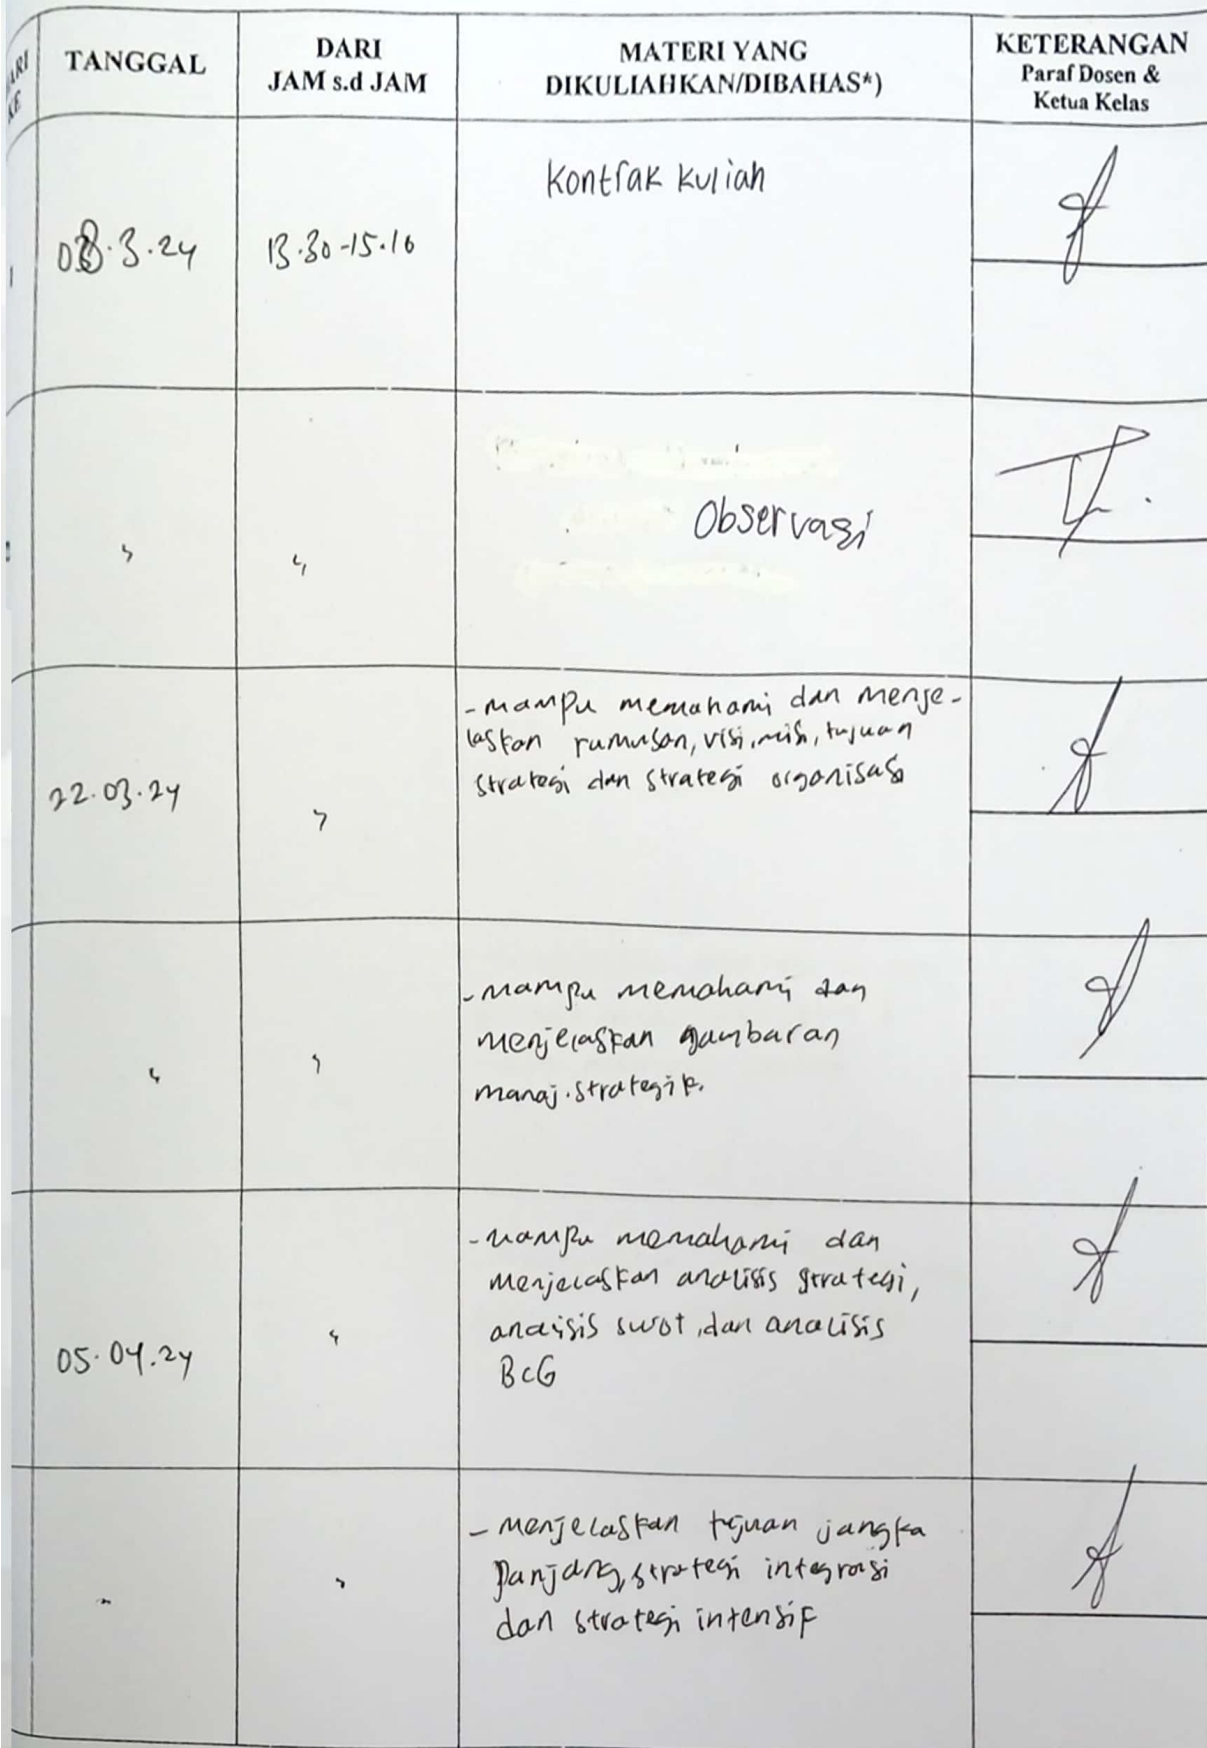 ARI
KE
TANGGAL
DARI
JAM s.d JAM
MATERI YANG
DIKULIAHKAN/DIBAHAS*)
KETERANGAN
Paraf Dosen &
Ketua Kelas
1
08.3.24
13.30-15.10
Kontrak kuliah
"
"
Observasi
22.03.24
"
- mampu memahami dan menje-
laskan rumusan, visi, misi, tujuan
strategi dan strategi organisasi
"
"
- mampu memahami dan
menjelaskan gambaran
manaj. strategik.
05.04.24
"
- mampu memahami dan
menjelaskan analisis strategi,
analisis swot, dan analisis
BCG
"
"
- menjelaskan tujuan jangka
panjang, strategi integrasi
dan strategi intensif